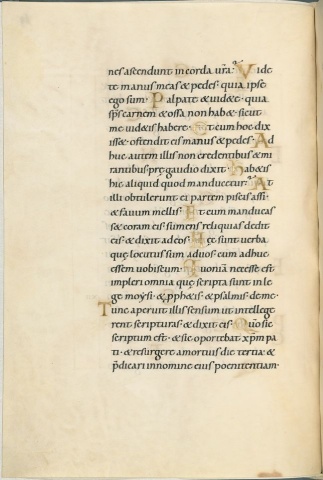 nes ascendunt in corda ur̄a · Vide
te manus meas & pedes · quia ipse
ego sum · Palpate & uid&e · quia
sp̄s carnem & ossa non hab& · sicut
me uid&is habere · Et cum hoc dix
iss& · ostendit eis manus & pedes · Ad
huc autem illis non credentibus & mi
rantibus prę gaudio dixit · Hab&is
hic aliquid quod manducetur · At
illi obtulerunt ei partem piscis assi ·
& fauum mellis · Et cum manducas
s& coram eis · sumens reliquias dedit
eis · & dixit ad eos · Hęc sunt uerba
quę locutus sum ad uos · cum adhuc
essem uobiscum · Quoniā necesse est
impleri omnia quę scripta sunt in le
ge moẏsi · & pph&is · & psalmis de me ·
Tunc aperuit illis sensum ut intellege
rent scripturas · & dixit eis · Quo sic
scriptum est · & sic oportebat xp̄m pa
ti · & resurgere a mortuis die tertia · &
p̄dicari in nomine eius poenitentiam ·